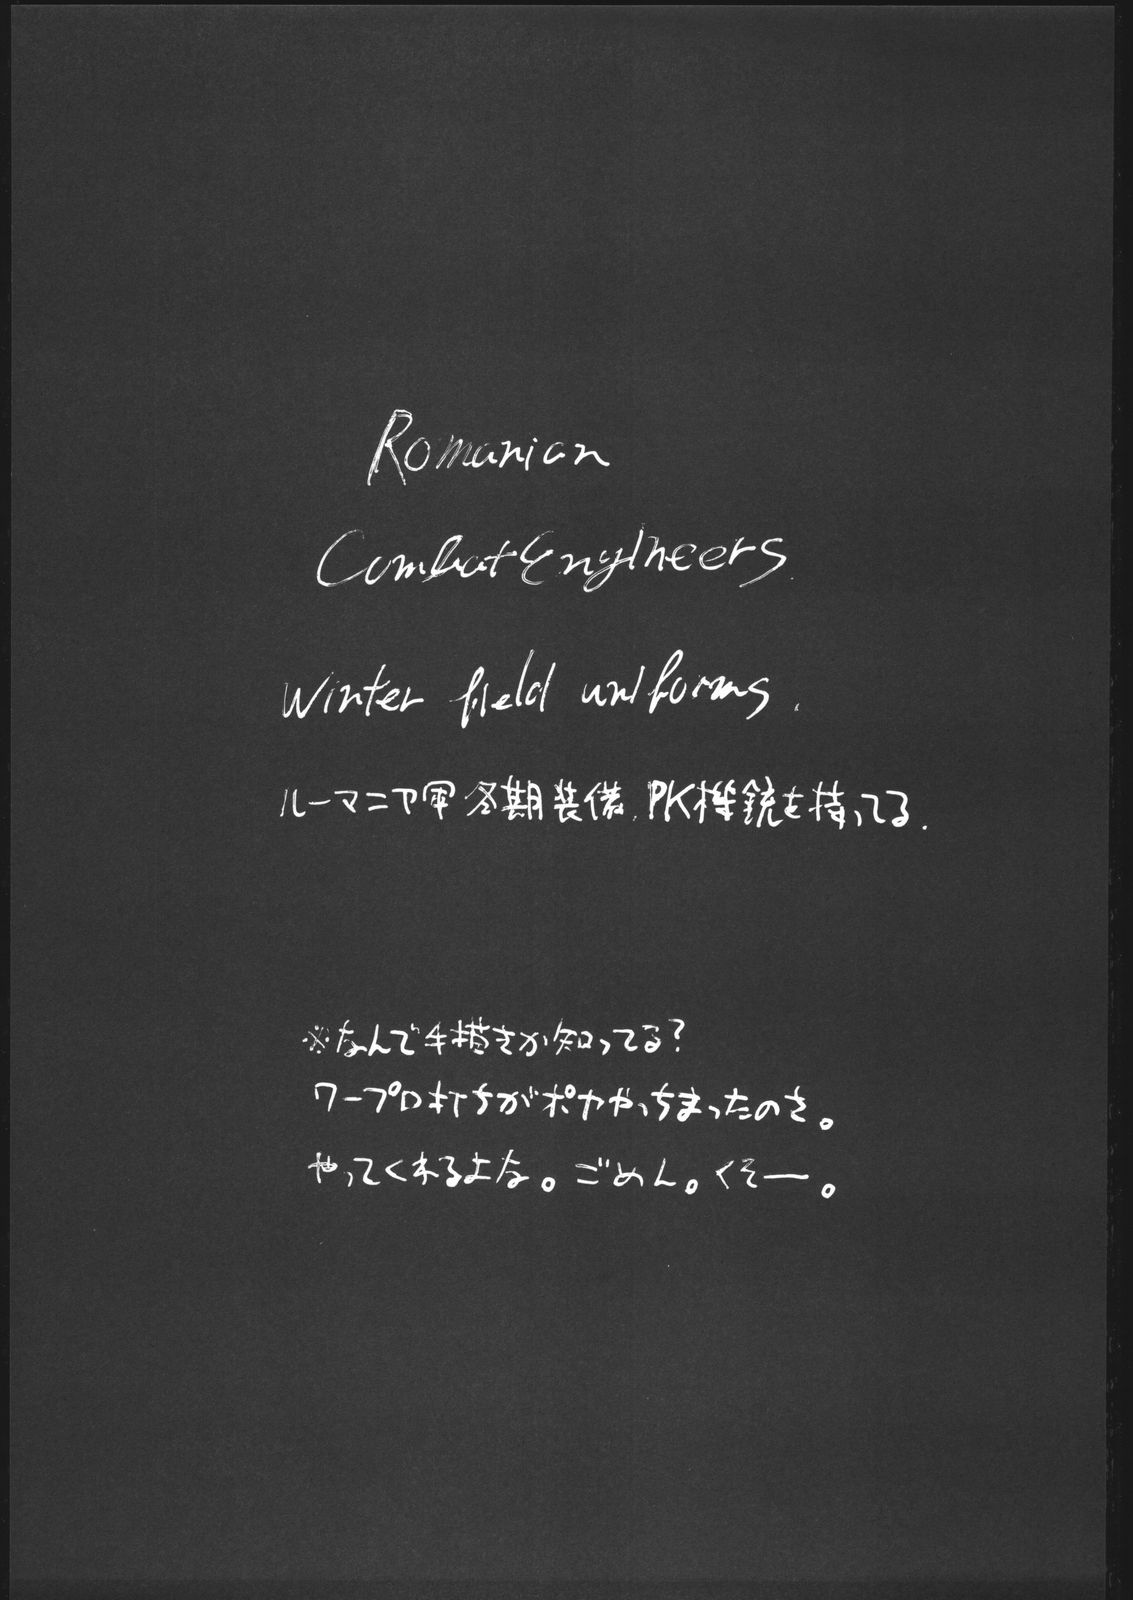 Romanian
Combat Engineers
Winter field uniforms.
ルーマニヤ軍冬期装備. PK機銃を持ってる.
※なんで手描きか知ってる?
ワープロ打ちがポカやっちまったのさ。
やってくれるよな。ごめん。くそー。